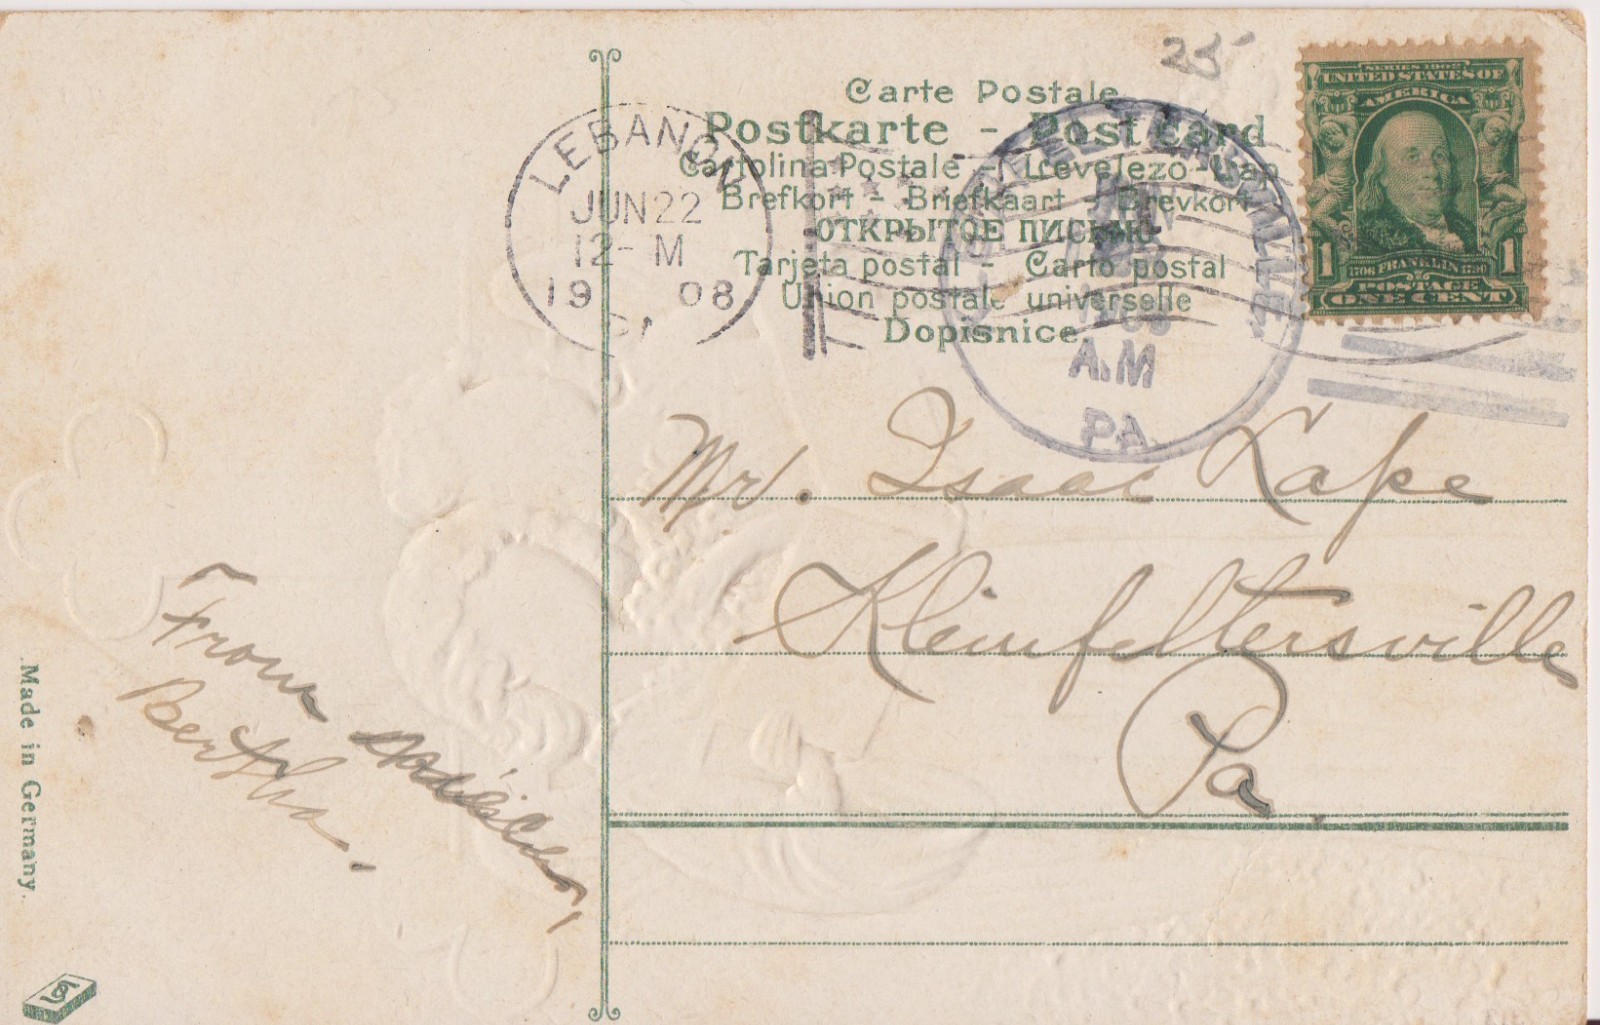 25
Carte Postale
Postkarte - Post Card
Cartolina Postale - Levelezo-Lap
Brefkort - Briefkaart - Brevkort
ОТКРЫТОЕ ПИСЬМО
Tarjeta postal - Carto postal
Union postale universelle
Dopisnice
LEBANON
JUN 22
12-M
1908
PA
KLEINFELTERSVILLE
A.M
PA.
SERIES 1902
UNITED STATES OF
AMERICA
1 1
1706 FRANKLIN 1790
POSTAGE
ONE CENT
Mr. Isaac Lape
Kleinfeltersville
Pa.
From
Bertha.
Made in Germany.